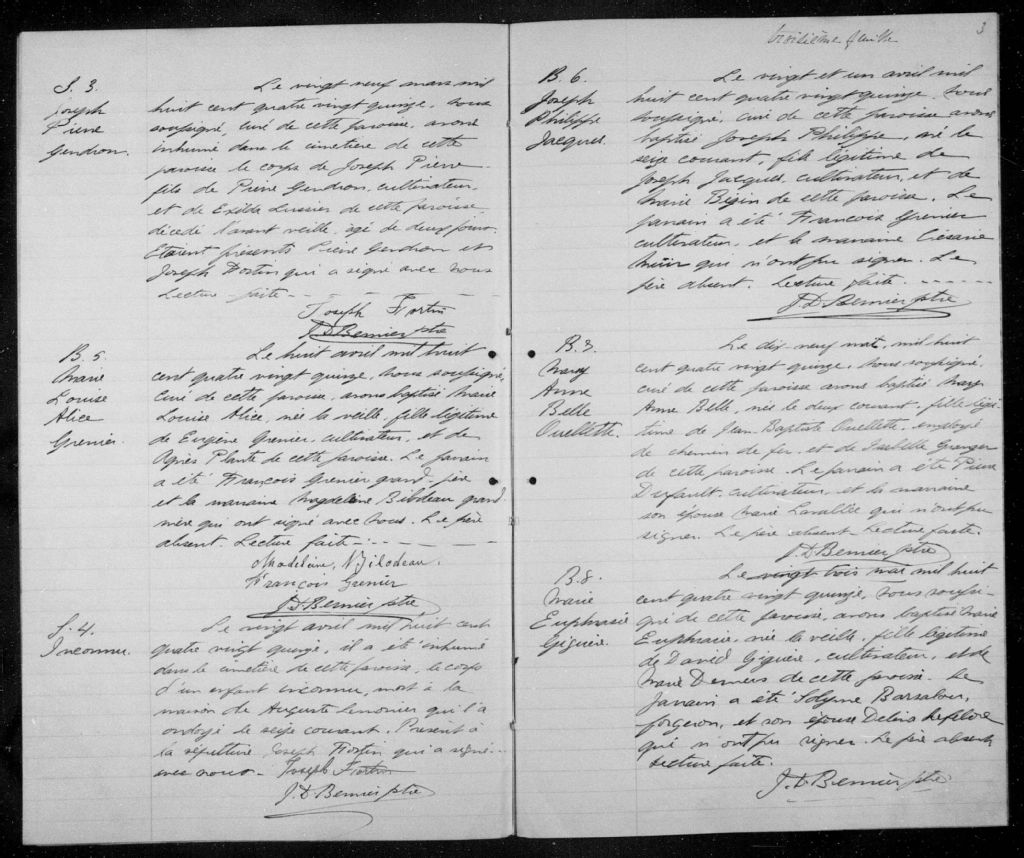 S. 3.
Joseph
Pierre
Gendron.
Le vingt neuf mars mil
huit cent quatre vingt quinze, nous
soussigné, curé de cette paroisse, avons
inhumé dans le cimetière de cette
paroisse le corps de Joseph Pierre
fils de Pierre Gendron, cultivateur,
et de Exilda Lussier de cette paroisse,
décédé l'avant veille, agé de deux jours.
Etaient présents Pierre Gendron et
Joseph Fortin qui a signé avec nous
Lecture faite
Joseph Fortin
J.D. Bernier ptre
B. 5.
Marie
Louise
Alice
Grenier.
Le huit avril mil huit
cent quatre vingt quinze, nous soussigné,
curé de cette paroisse, avons baptisé Marie
Louise Alice, née la veille, fille légitime
de Eugène Grenier, cultivateur, et de
Agnès Plante de cette paroisse. Le parain
a été François Grenier grand-père
et la marraine Magdeleine Bilodeau grand
mère qui ont signé avec nous. Le père
absent. Lecture faite
Madeleine Bilodeau.
François Grenier
J.D. Bernier ptre
S. 4.
Inconnu.
Le vingt avril mil huit cent
quatre vingt quinze, il a été inhumé
dans le cimetière de cette paroisse, le corps
d'un enfant inconnu, mort à la
maison de Auguste Lemonier qui l'a
ondoyé le seize courant. Présent à
la sépulture Joseph Fortin qui a signé
avec nous. Joseph Fortin
J.D. Bernier ptre
troisième feuille
3
B. 6.
Joseph
Philippe
Jacques.
Le vingt et un avril mil
huit cent quatre vingt quinze, nous
soussigné, curé de cette paroisse avons
baptisé Joseph Philippe, né le
seize courant, fils légitime de
Joseph Jacques, cultivateur, et de
Marie Bégin de cette paroisse. Le
parain a été François Grenier
cultivateur, et la marraine Césarie
qui n'ont pu signer. Le
père absent. Lecture faite.
J.D. Bernier ptre
B. 7.
Mary
Anne
Belle
Ouellette.
Le dix neuf mai, mil huit
cent quatre vingt quinze, nous soussigné,
curé de cette paroisse avons baptisé Mary
Anne Belle, née le deux courant, fille légi-
time de Jean Baptiste Ouellette, employé
de chemin de fer, et de Isabelle Granger
de cette paroisse. Le parain a été Pierre
Dufault, cultivateur, et la marraine
son épouse Marie Lavallée qui n'ont pu
signer. Le père absent. Lecture faite.
J.D. Bernier ptre
B. 8.
Marie
Euphrasie
Giguère.
Le vingt trois mai mil huit
cent quatre vingt quinze, nous soussi-
gné de cette paroisse, avons baptisé Marie
Euphrasie, née la veille, fille légitime
de David Giguère, cultivateur, et de
Marie Demers de cette paroisse. Le
parain a été Solyme Barsalou,
forgeron, et son épouse Delina
qui n'ont pu signer. Le père absent
Lecture faite.
J.D. Bernier ptre